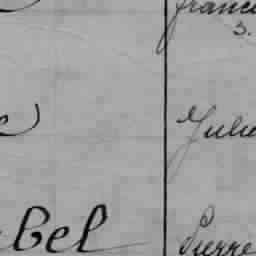 franc
3.
e Julie
bel Pierre